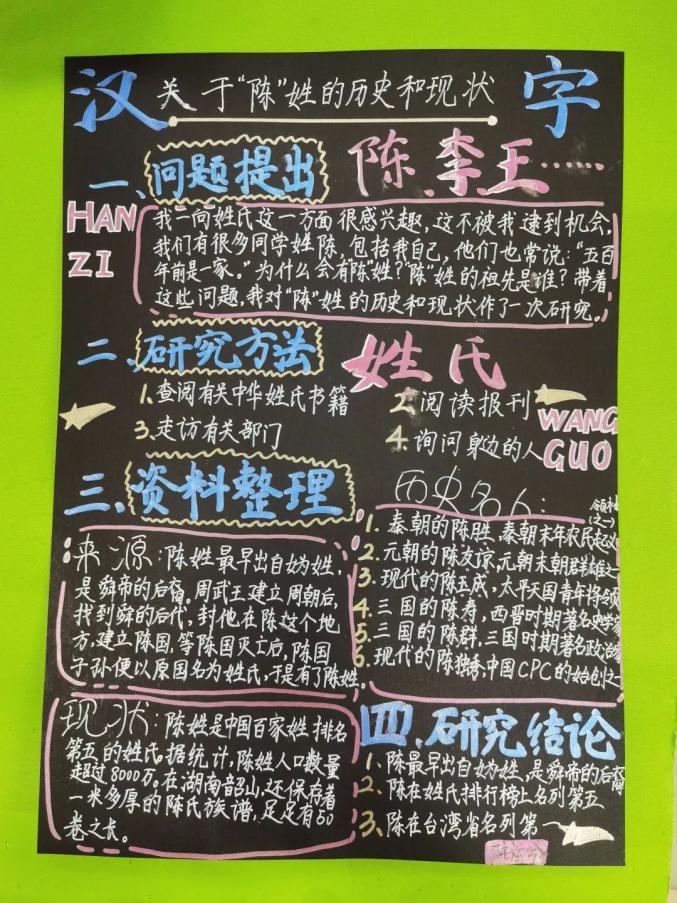 汉 字
关于“陈”姓的历史和现状
一、问题提出
陈、李、王……
HAN
ZI
我一向姓氏这一方面很感兴趣，这不被我逮到机会，
我们有很多同学姓陈，包括我自己，他们也常说：“五百
年前是一家。”为什么会有“陈”姓？“陈”姓的祖先是谁？带着
这些问题，我对“陈”姓的历史和现状作了一次研究。
二、研究方法
姓氏
1.查阅有关中华姓氏书籍
2.阅读报刊
3.走访有关部门
4.询问身边的人
WANG
GUO
三、资料整理
来源：陈姓最早出自妫姓，
是舜帝的后裔。周武王建立周朝后，
找到舜的后代，封他在陈这个地
方，建立陈国，等陈国灭亡后，陈国
子孙便以原国名为姓氏，于是有了陈姓。
历史名人：
1.秦朝的陈胜，秦朝末年农民起义
领袖
（之一）
2.元朝的陈友谅，元朝末朝群雄之一
3.现代的陈玉成，太平天国青年将领
4.三国的陈寿，西晋时期著名史学家
5.三国的陈群，三国时期著名政治家
6.现代的陈独秀，中国CPC的始创之一
现状：陈姓是中国百家姓排名
第五的姓氏。据统计，陈姓人口数量
超过8000万。在湖南韶山，还保存着
一米多厚的陈氏族谱，足足有50
卷之长。
四、研究结论
1.陈最早出自妫姓，是舜帝的后裔
2.陈在姓氏排行榜上名列第五
3.陈在台湾省名列第一